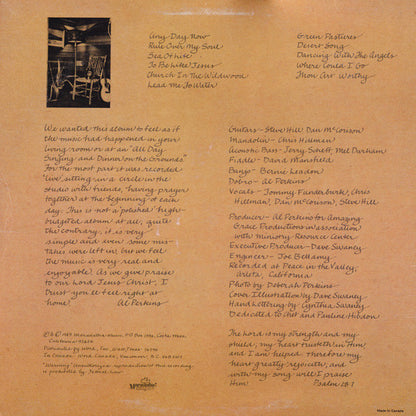 Any Day Now
Rule Over My Soul
Sea Of Life
To Be Like Jesus
Church In The Wildwood
Lead Me To Water
Green Pastures
Desert Song
Dancing With The Angels
Where Could I Go
Thou Art Worthy
We wanted this album to feel as if
the music had happened in your
living room or at an "All Day
Singing and Dinner on the Grounds"
For the most part it was recorded
"live", sitting in a circle in the
studio with friends, having prayer
together at the beginning of each
day. This is not a "polished" high-
budgeted album at all; quite
the contrary, it is very
simple and even some mis-
takes were left in; but we feel
the music is very real and
enjoyable. As we give praise
to our Lord Jesus Christ, I
trust you'll feel right at
home! Al Perkins
Guitars - Steve Hill Dan McCorison
Mandolin - Chris Hillman
Acoustic Bass - Jerry Scheff, Mel Durham
Fiddle - David Mansfield
Banjo - Bernie Leadon
Dobro - Al Perkins
Vocals - Tommy Funderburk, Chris
Hillman, Dan McCorison, Steve Hill
Producer - Al Perkins for Amazing
Grace Productions in association
with Ministry Resource Center
Executive Producer - Dave Swaney
Engineer - Joe Bellamy
Recorded at Peace in the Valley,
California
Photo by Deborah Perkins
Cover Illustration by Dave Swaney
Hand lettering by Cynthia Swaney
Dedicated to Chet and Pauline Hixdon
The Lord is my strength and my
shield, my heart trusteth in Him,
and I am helped. Therefore my
heart greatly rejoiceth; and
with my song will I praise
Him! Psalm 28:7
California 92626
Made in Canada